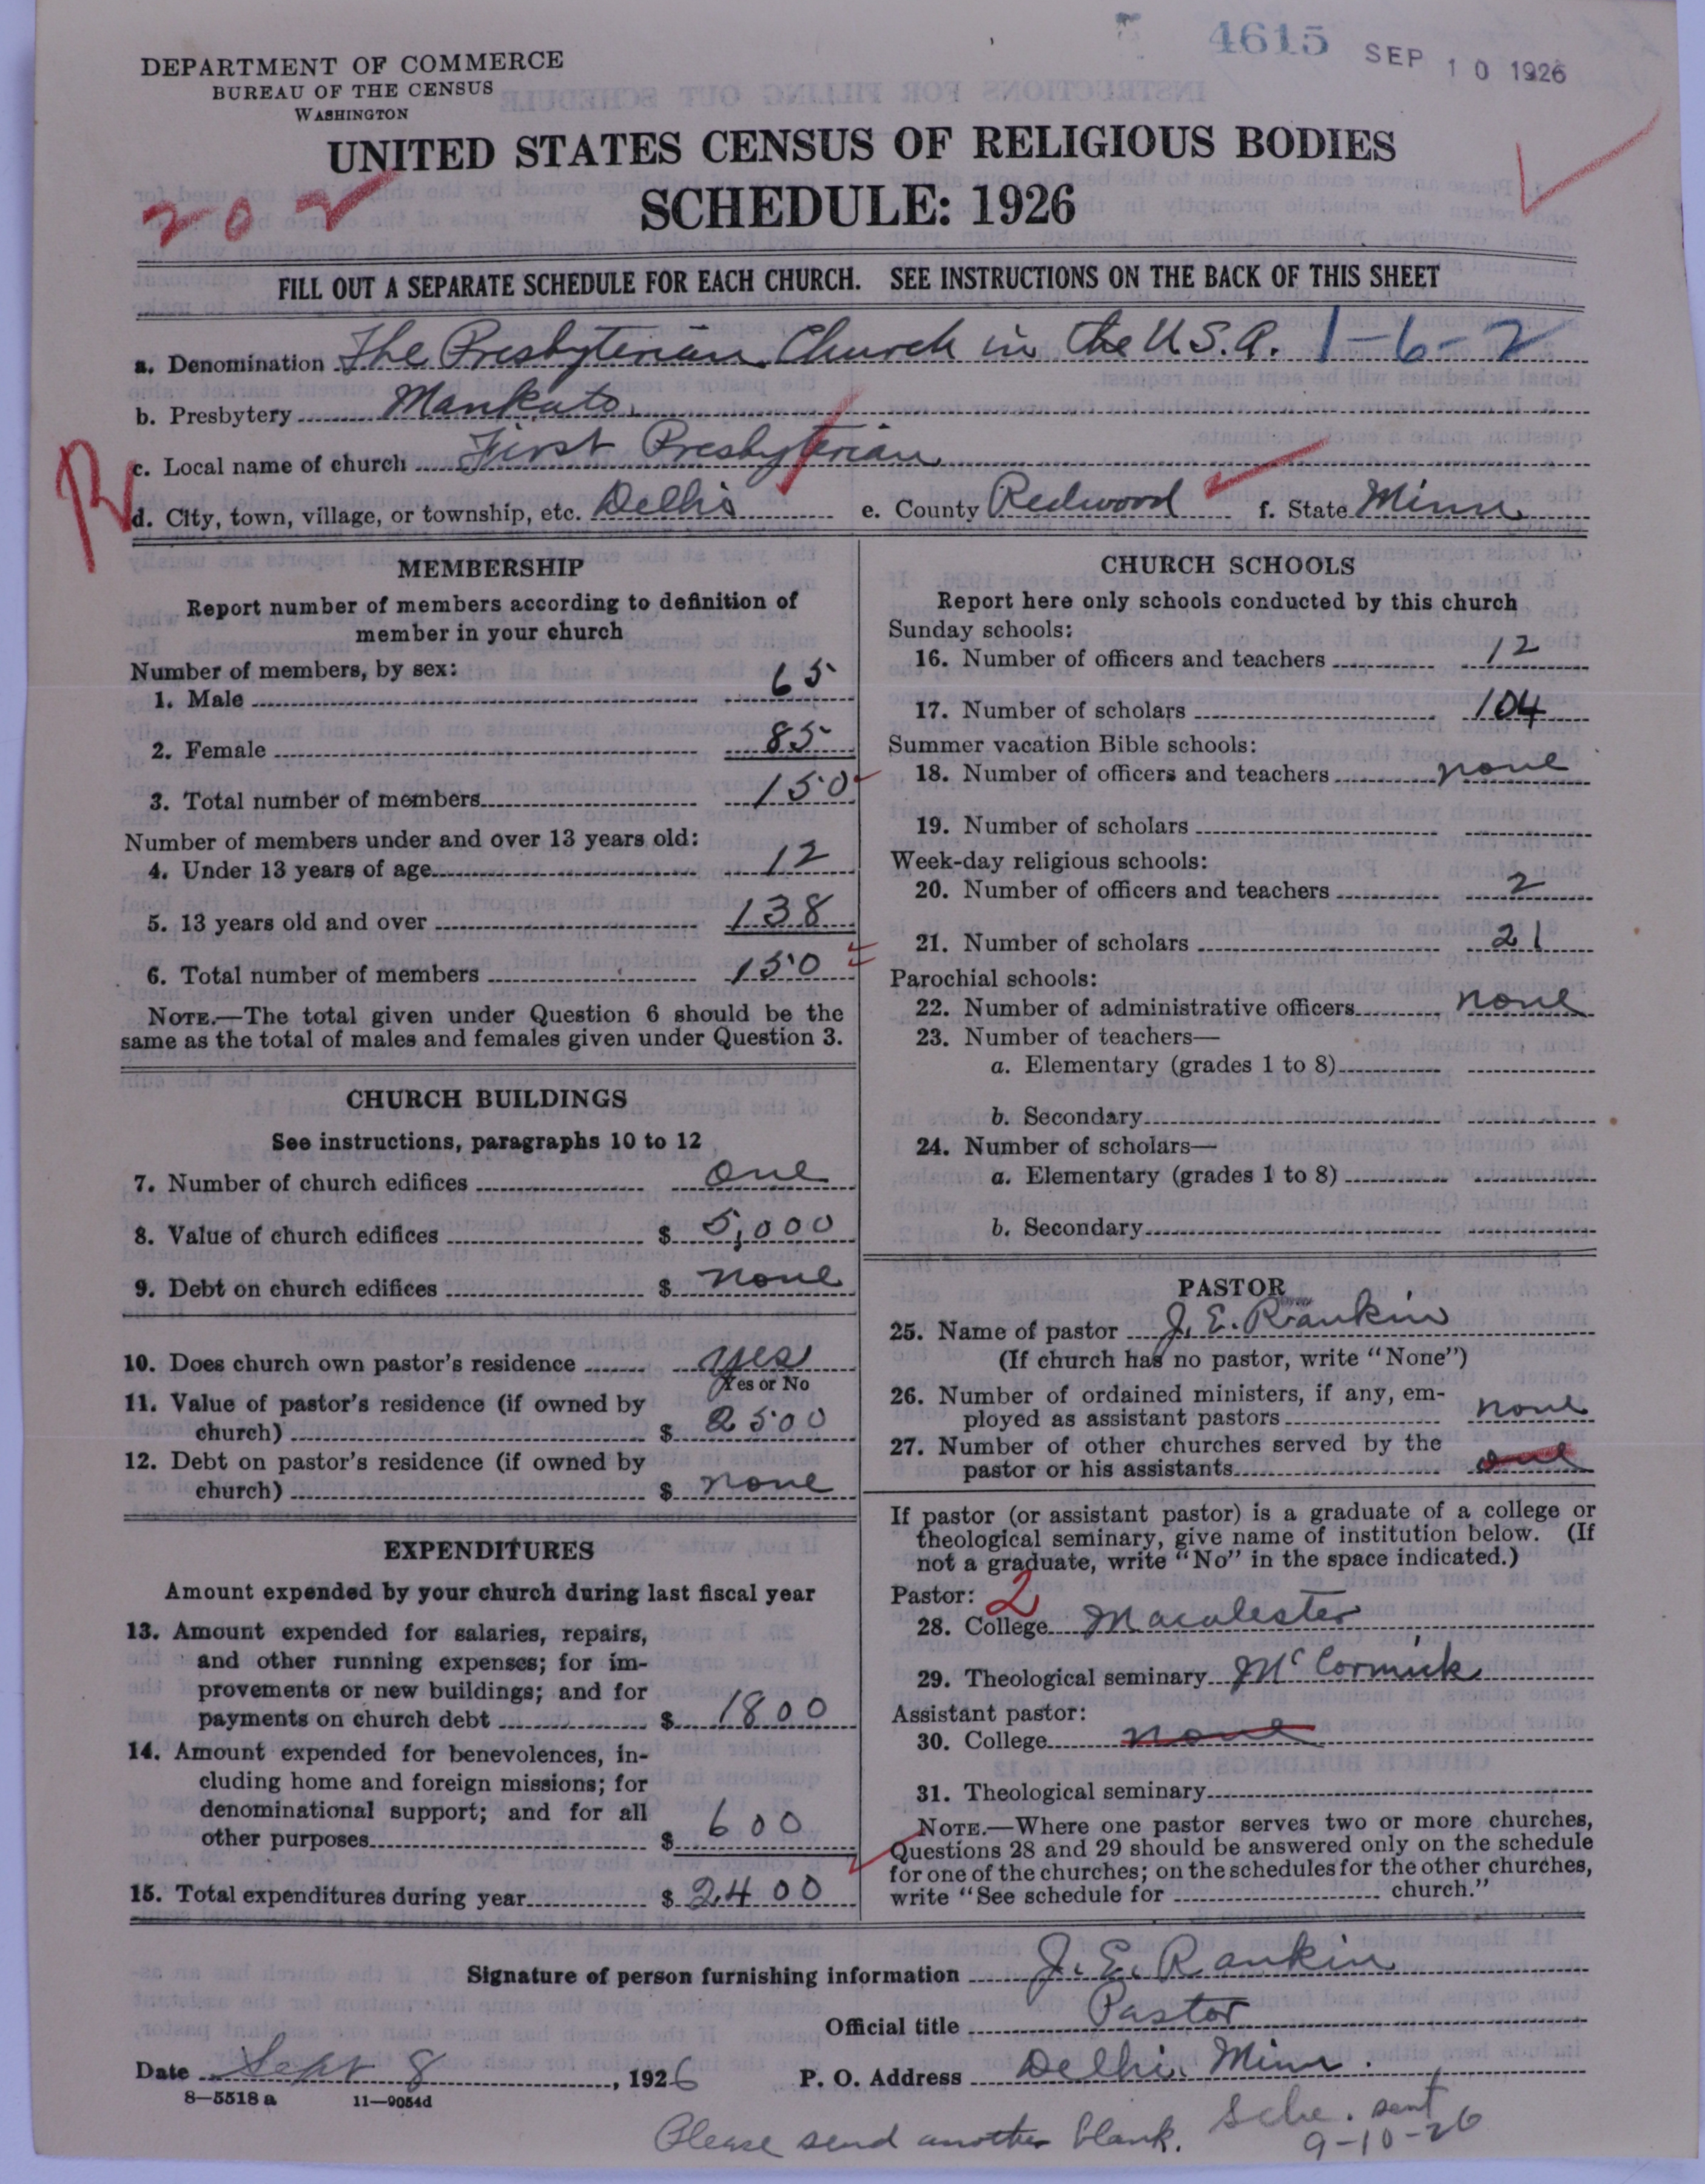 4615 SEP 10 1926
DEPARTMENT OF COMMERCE
BUREAU OF THE CENSUS
WASHINGTON
UNITED STATES CENSUS OF RELIGIOUS BODIES
202
SCHEDULE: 1926
FILL OUT A SEPARATE SCHEDULE FOR EACH CHURCH. SEE INSTRUCTIONS ON THE BACK OF THIS SHEET
a. Denomination The Presbyterian Church in the U.S.A. 1-6-2
b. Presbytery Mankato
c. Local name of church First Presbyterian
d. City, town, village, or township, etc. Delhi e. County Redwood f. State Minn
MEMBERSHIP
Report number of members according to definition of
member in your church
Number of members, by sex:
1. Male 65
2. Female 85
3. Total number of members 150
Number of members under and over 13 years old:
4. Under 13 years of age 12
5. 13 years old and over 138
6. Total number of members 150
NOTE.—The total given under Question 6 should be the
same as the total of males and females given under Question 3.
CHURCH BUILDINGS
See instructions, paragraphs 10 to 12
7. Number of church edifices one
8. Value of church edifices $ 5,000
9. Debt on church edifices $ none
10. Does church own pastor's residence yes
Yes or No
11. Value of pastor's residence (if owned by
church) $ 2500
12. Debt on pastor's residence (if owned by
church) $ none
EXPENDITURES
Amount expended by your church during last fiscal year
13. Amount expended for salaries, repairs,
and other running expenses; for im-
provements or new buildings; and for
payments on church debt $ 1800
14. Amount expended for benevolences, in-
cluding home and foreign missions; for
denominational support; and for all
other purposes $ 600
15. Total expenditures during year $ 2400
CHURCH SCHOOLS
Report here only schools conducted by this church
Sunday schools:
16. Number of officers and teachers 12
17. Number of scholars 104
Summer vacation Bible schools:
18. Number of officers and teachers none
19. Number of scholars
Week-day religious schools:
20. Number of officers and teachers 2
21. Number of scholars 21
Parochial schools:
22. Number of administrative officers none
23. Number of teachers—
a. Elementary (grades 1 to 8)
b. Secondary
24. Number of scholars—
a. Elementary (grades 1 to 8)
b. Secondary
PASTOR
25. Name of pastor J. E. Rankin
(If church has no pastor, write "None")
26. Number of ordained ministers, if any, em-
ployed as assistant pastors none
27. Number of other churches served by the
pastor or his assistants one
If pastor (or assistant pastor) is a graduate of a college or
theological seminary, give name of institution below. (If
not a graduate, write "No" in the space indicated.)
Pastor: 2
28. College Macalester
29. Theological seminary McCormick
Assistant pastor:
30. College none
31. Theological seminary
NOTE.—Where one pastor serves two or more churches,
Questions 28 and 29 should be answered only on the schedule
for one of the churches; on the schedules for the other churches,
write "See schedule for church."
Signature of person furnishing information J. E. Rankin
Official title Pastor
Date Sept 8, 1926 P. O. Address Delhi, Minn.
8—5518 a 11—9054d
Please send another blank. Sche. sent
9-10-26